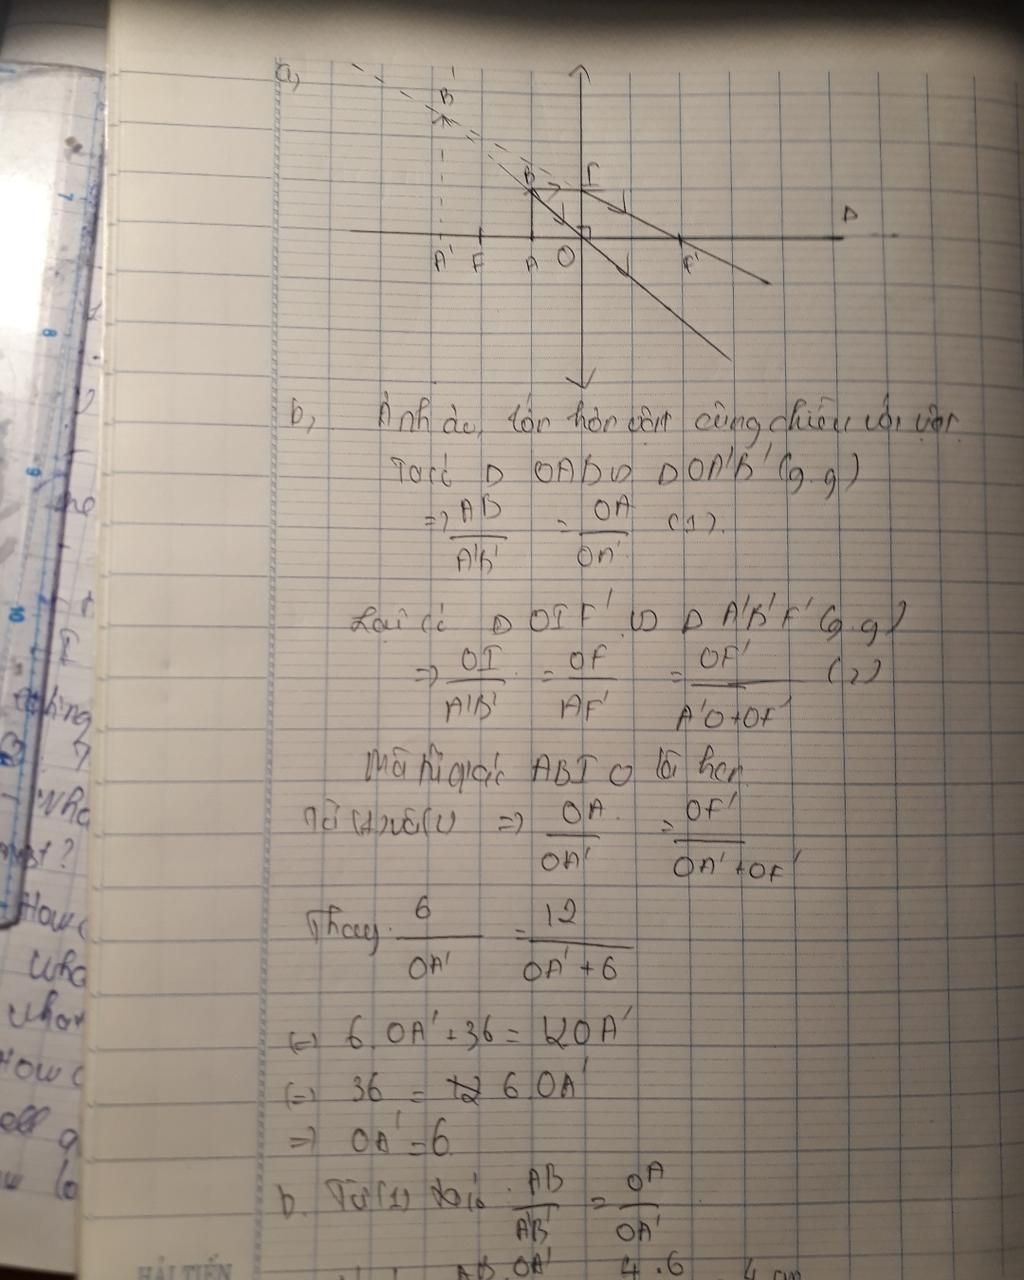 a,
B'
B
I
Δ
A'
F
A
O
F'
b, Ảnh ảo, lớn hơn vật cùng chiều với vật.
Ta có Δ OAB ∽ Δ OA'B' (g.g)
=> AB/A'B' = OA/OA' (1).
Lại có Δ OIF' ∽ Δ A'B'F' (g.g)
=> OI/A'B' = OF/AF' = OF'/A'O+OF' (2)
Mà tứ giác ABIO là hcn
Từ (1) và (2) => OA/OA' = OF'/OA'+OF'
Thay 6/OA' = 12/OA'+6
(=) 6.OA'+36 = 12OA'
(=) 36 = 6.OA'
=> OA' = 6
b. Từ (1) ta có AB/A'B' = OA/OA'
AB.OA' 4.6 4 cm
7
8
9
10
the
I
?
Who
How
Who
What
How
HẢI TIẾN